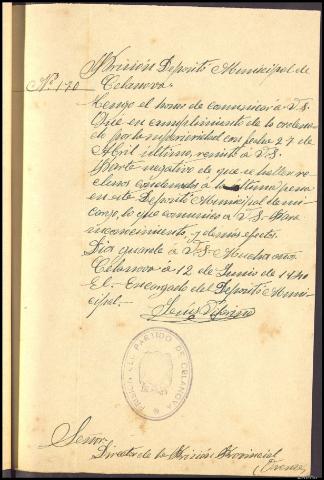 Prisión Deposito Municipal de
Nº 170
Celanova.
Tengo el honor de comunicar á V.S.
Que en cumplimiento de lo ordena-
do por la superioridad con fecha 27 de
Abril último, remito á V.S.
Parte negativo de que se hallen re-
clusos condenados á la última pena
en este Deposito Municipal de mi
cargo, lo que comunico a V.S. Para
su conocimiento y demas efectos.
Dios guarde á V.S. Muchos años
Celanova á 12 de Junio de 1940
El Encargado del Deposito Muni-
cipal.
Jesús
PRISION DEL PARTIDO DE CELANOVA
Señor.
Director de la Prisión Provincial
(Orense)